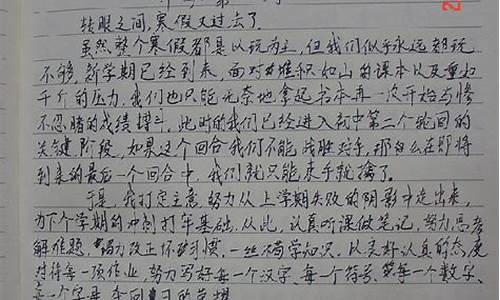 转眼之间,寒假又过去了。
虽然整个寒假都是以玩为主,但我们似乎永远都玩
不够。新学期已经到来,面对堆积如山的课本以及重如
千斤的压力,我们也只能无奈地拿起书本再一次开始与惨
不忍睹的成绩搏斗,此时的我们已经进入初中第二个轮回的
关键阶段,如果这个回合我们不能战胜对手,那么在即将
到来的最后一个回合中,我们就只能束手就擒了。
于是,我打定主意努力从上学期失败的阴影中走出来,
为下个学期的冲刺打牢基础,从此,认真听课做笔记,努力思考
解难题,努力改正坏习惯,一丝不苟学知识。以良好认真的态度
对待每一项作业,努力写好每一个汉字、每一个符号、每一个数字、
每一个字母